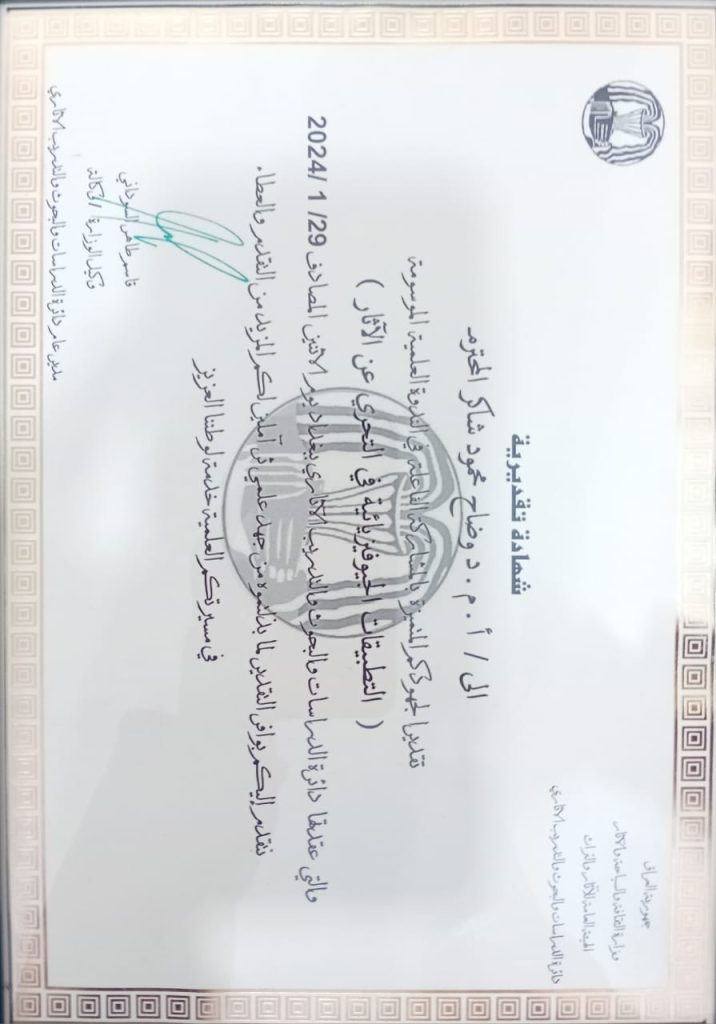 جمهورية العراق
وزارة الثقافة والسياحة والآثار
الهيئة العامة للآثار والتراث
دائرة الدراسات والبحوث والتدريب الآثاري
شهادة تقديرية
الى / أ . م . د وضاح محمود شاكر المحترم
تقديرا لجهودكم المتميزة بالمشاركة الفاعلة في الندوة العلمية الموسومة
( التطبيقات الجيوفيزيائية في التحري عن الآثار )
والتي عقدتها دائرة الدراسات والبحوث والتدريب الآثاري ببغداد يوم الاثنين المصادف 29/ 1 /2024
نتقدم إليكم بوافر التقدير لما بذلتموه من جهد علمي ثر آملين لكم المزيد من التقدم والعطاء
في مسيرتكم العلمية خدمة لوطننا العزيز
قاسم طاهر السوداني
وكيل الوزارة / وكالة
مدير عام دائرة الدراسات والبحوث والتدريب الآثاري